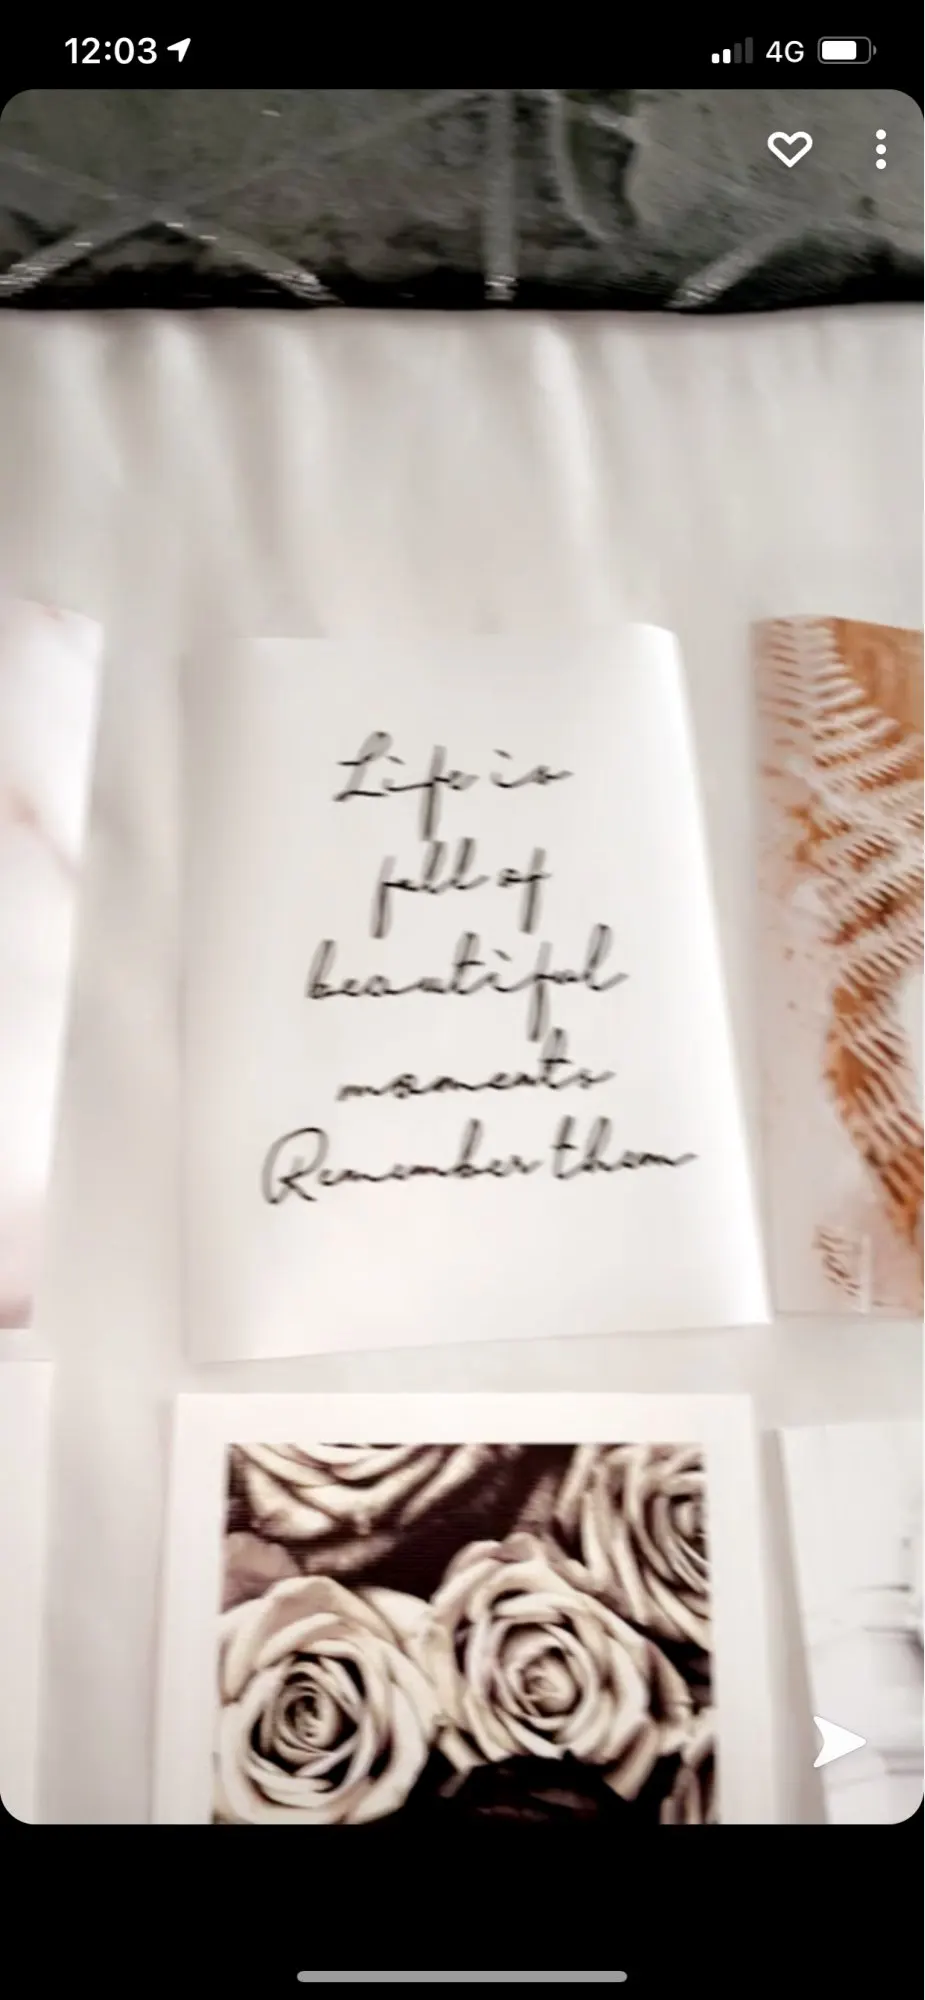 12:03
4G
Life is
full of
beautiful
moments
Remember them